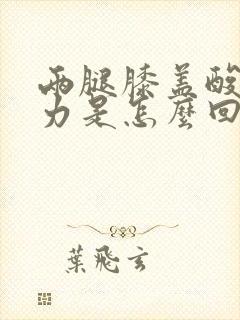 兩腿膝盖酸
力是怎麼回
葉飛玄